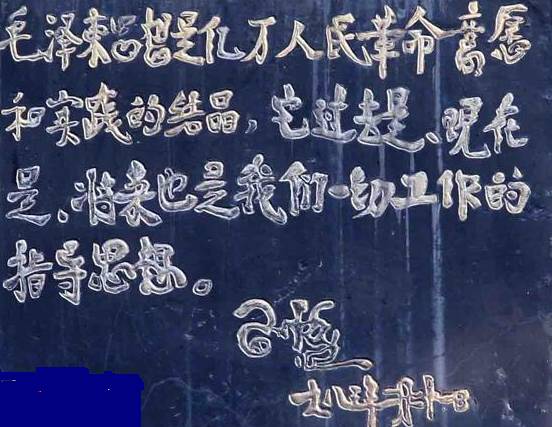 毛泽东思想是亿万人民革命意念
和实践的结晶，它过去是、现在
是、将来也是我们一切工作的
指导思想。